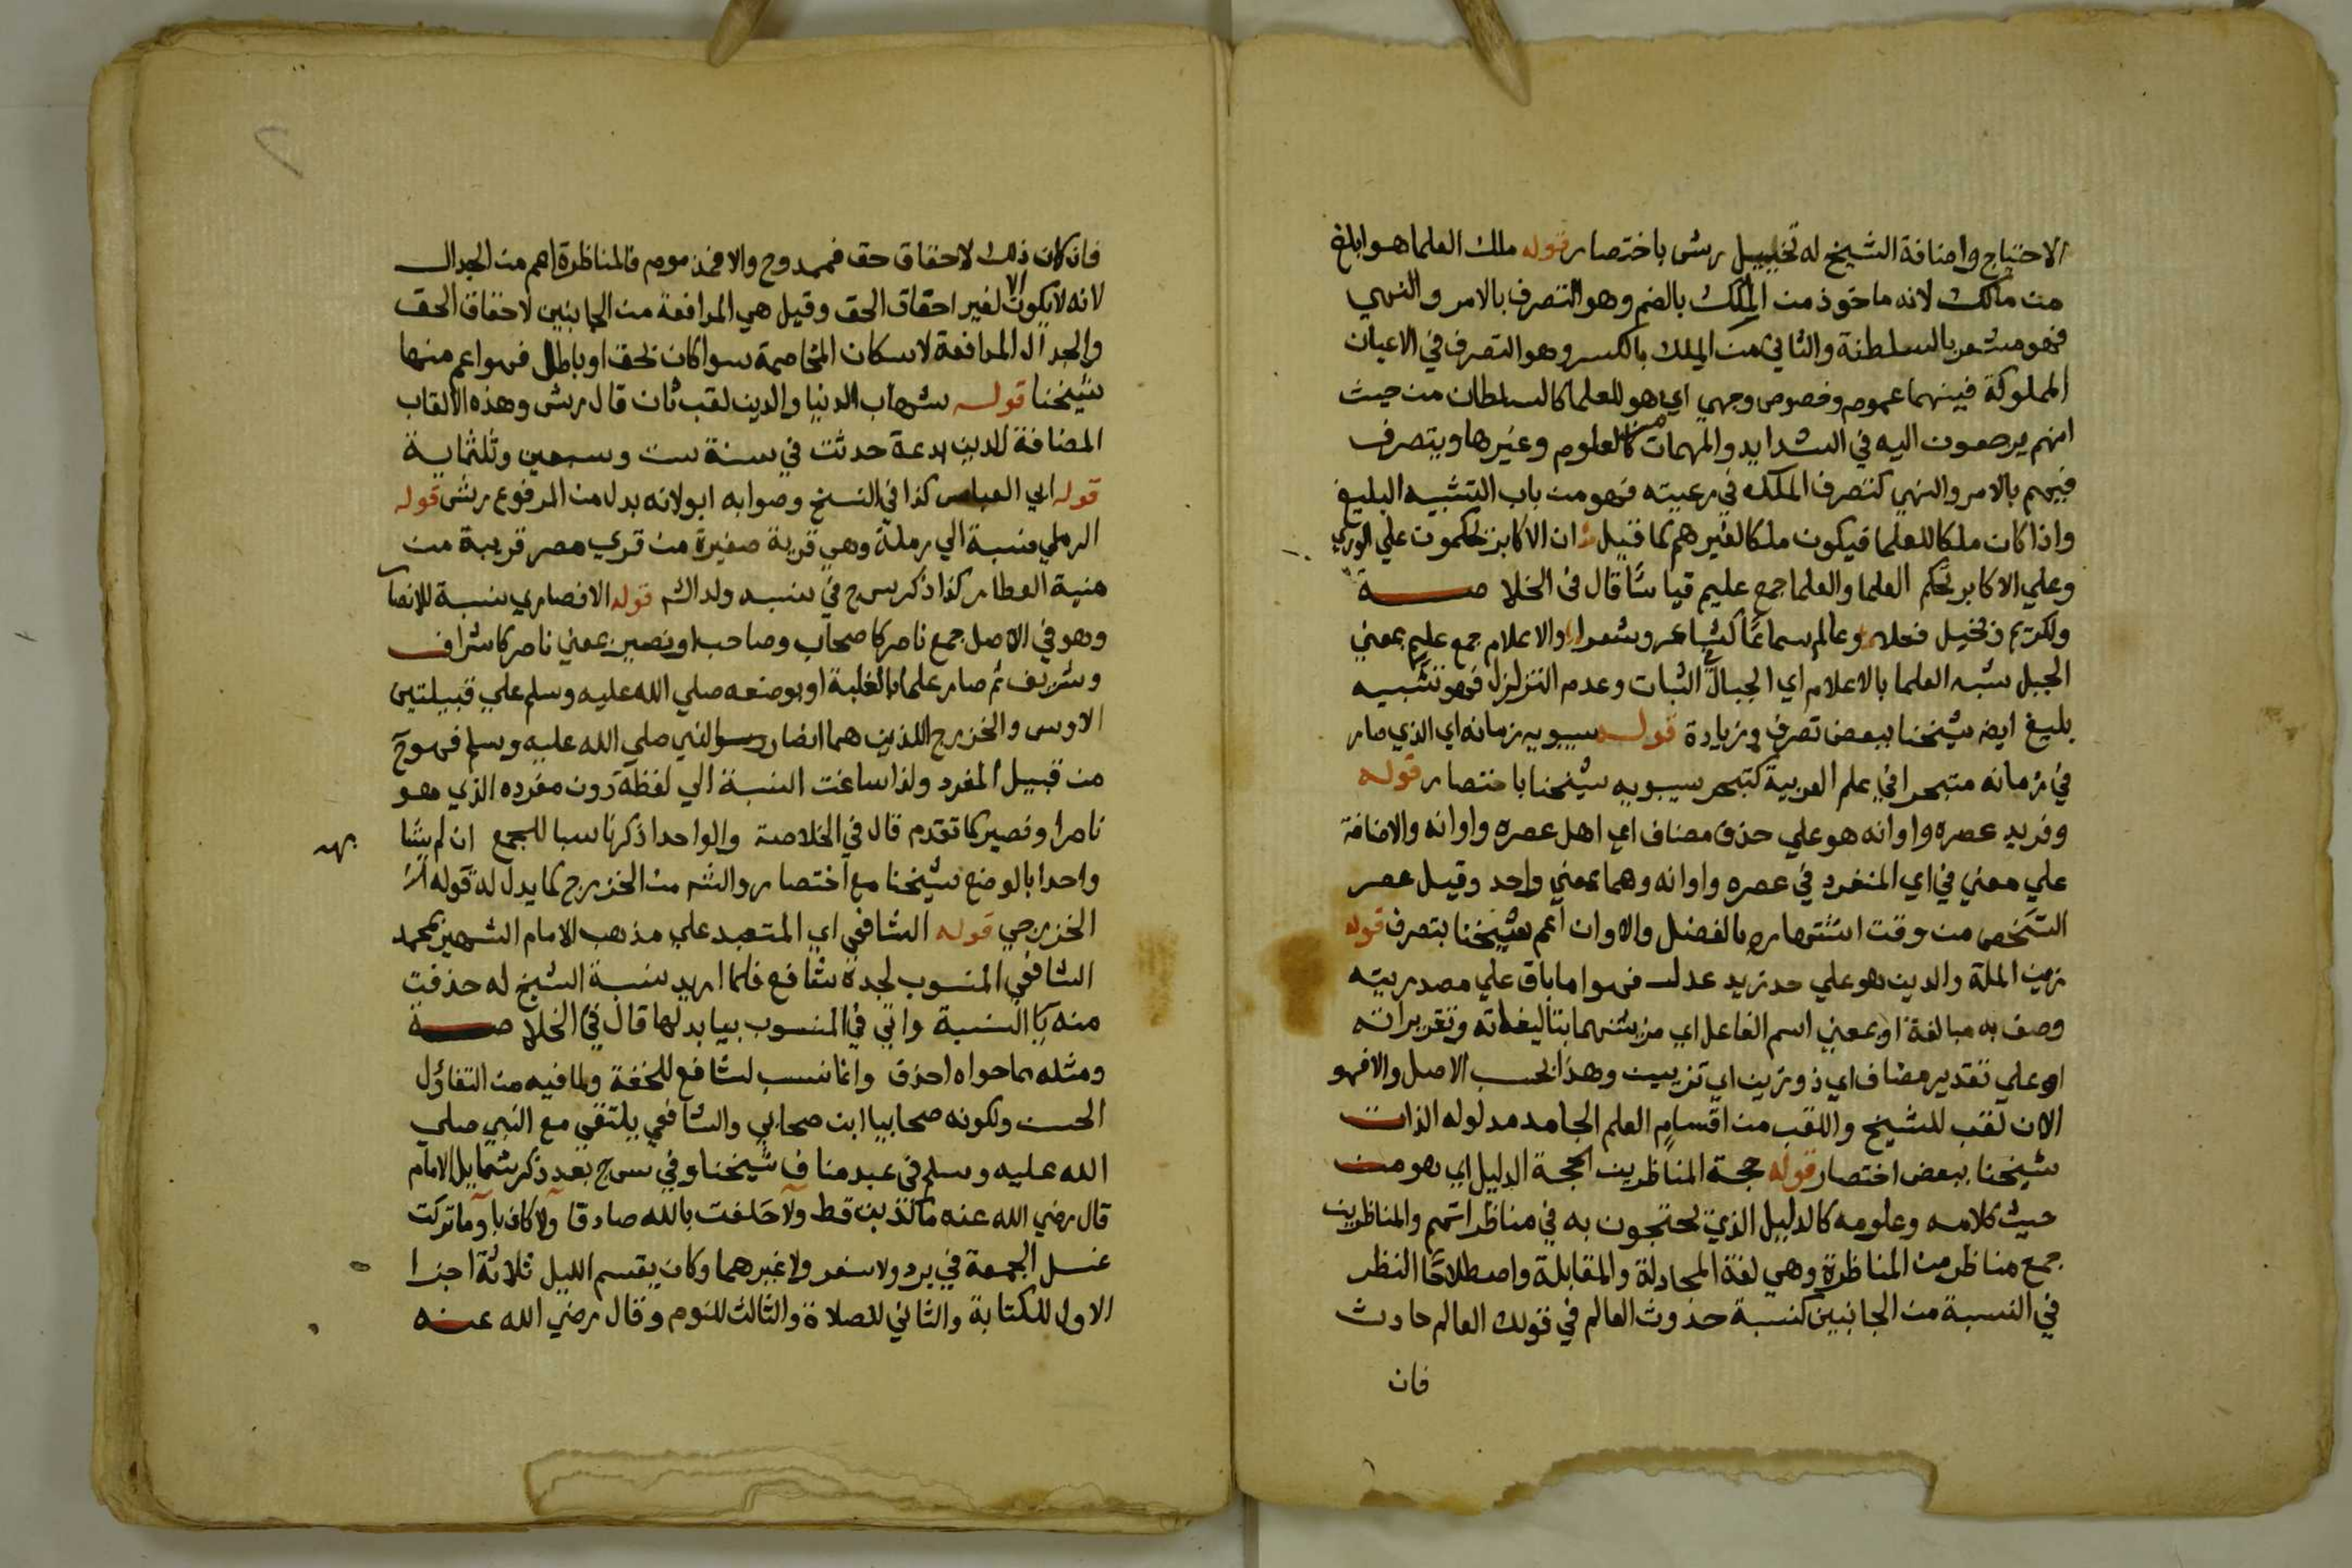 الاحتياج واضافة الشيخ له تخييل رش باختصار قوله ملك العلما هو ابلغ
من مالك لانه ماخوذ من الملك بالضم وهو التصرف بالامر والنهي
فهو مشعر بالسلطنة والثاني من الملك بالكسر وهو التصرف في الاعيان
المملوكة فبينهما عموم وخصوص وجهي اي هو للعلما كالسلطان من حيث
انهم يرجعون اليه في الشدايد والمهمات من العلوم وغيرها ويتصرف
فيهم بالامر والنهي كتصرف الملك في رعيته فهو من باب التشبيه البليغ
واذا كان ملكا للعلما فيكون ملكا لغيرهم كما قيل ان الاكابر يحكمون علي الوري
وعلي الاكابر تحكم العلما والعلما جمع عليم قياسا قال في الخلاصة
ولكريم وبخيل فعلا وعالم سماعا كشاعر وشعرا والاعلام جمع علم بمعني
الجبل شبه العلما بالاعلام اي الجبال الثبات وعدم التزلزل فهو تشبيه
بليغ ايض شيخنا ببعض تصرف وزيادة قوله سيبويه زمانه اي الذي صار
في زمانه متبحرا في علم العربية كتبحر سيبويه شيخنا باختصار قوله
وفريد عصره واوانه هو علي حذف مضاف اي اهل عصره واوانه والاضافة
علي معني في اي المنفرد في عصره واوانه وهما بمعني واحد وقيل عصر
الشخص من وقت اشتهاره بالفضل والاوان اعم شيخنا بتصرف قوله
زين الملة والدين هو علي حد زيد عدل فهو اما باق علي مصدريته
وصف به مبالغة او بمعني اسم الفاعل اي مزينهما بتاليفاته وتقريراته
او علي تقدير مضاف اي ذو زين اي تزيين وهذا بحسب الاصل والا فهو
الان لقب للشيخ واللقب من اقسام العلم الجامد مدلوله الذات
شيخنا ببعض اختصار قوله حجة المناظرين الحجة الدليل اي هو من
حيث كلامه وعلومه كالدليل الذي يحتجون به في مناظراتهم والمناظرين
جمع مناظر من المناظرة وهي لغة المجادلة والمقابلة واصطلاحا النظر
في النسبة من الجانبين كنسبة حدوث العالم في قولك العالم حادث
فان
فان كان ذلك لاحقاق حق فممدوح والا فمذموم فالمناظرة اهم من الجدال
لانه لا يكون الا لغير احقاق الحق وقيل هي المرافعة من الجانبين لاحقاق الحق
والجدال المرافعة لاسكان المخاصمة سوا كان بحق او باطل فهو اعم منها
شيخنا قوله شهاب الدنيا والدين لقب ثان قال رش وهذه الالقاب
المضافة للدين بدعة حدثت في سنة ست وسبعين وثلثماية
قوله ابي العباس كذا في النسخ وصوابه ابو لانه بدل من المرفوع رش قوله
الرملي نسبة الي رملة وهي قرية صغيرة من قري مصر قريبة من
منية العطار كذا ذكر س ج في نسبه ولد اه قوله الانصاري نسبة للانصا
وهو في الاصل جمع ناصر كاصحاب وصاحب او نصير بمعني ناصر كاشراف
وشريف ثم صار علما بالغلبة او بوضعه صلي الله عليه وسلم علي قبيلتين
الاوس والخزرج اللذين هما انصار النبي صلي الله عليه وسلم فهو ح
من قبيل المفرد ولذا ساغت النسبة الي لفظه دون مفرده الذي هو
ناصر او نصير كما تقدم قال في الخلاصة والواحد اذكر ناسبا للجمع ان لم يشا
به
واحدا بالوضع شيخنا مع اختصار والش من الخزرج كما يدل له قوله
الخزرجي قوله الشافعي اي المتعبد علي مذهب الامام الشهير محمد
الشافعي المنسوب لجده شافع فلما اريد نسبة الشيخ له حذفت
منه يا النسبة واتي في المنسوب بيا بدلها قال في الخلاصة
ومثله مما حواه احذف وانما نسب لشافع للخفة ولما فيه من التفاؤل
الحسن ولكونه صحابيا ابن صحابي والشافعي يلتقي مع النبي صلي
الله عليه وسلم في عبد مناف شيخنا وفي س ج بعد ذكر شمايل الامام
قال رضي الله عنه ما كذبت قط ولا حلفت بالله صادقا ولا كاذبا وما تركت
غسل الجمعة في برد ولا سفر ولا غيرهما وكان يقسم الليل ثلاثة اجزا
الاول للكتابة والثاني للصلاة والثالث للنوم وقال رضي الله عنه